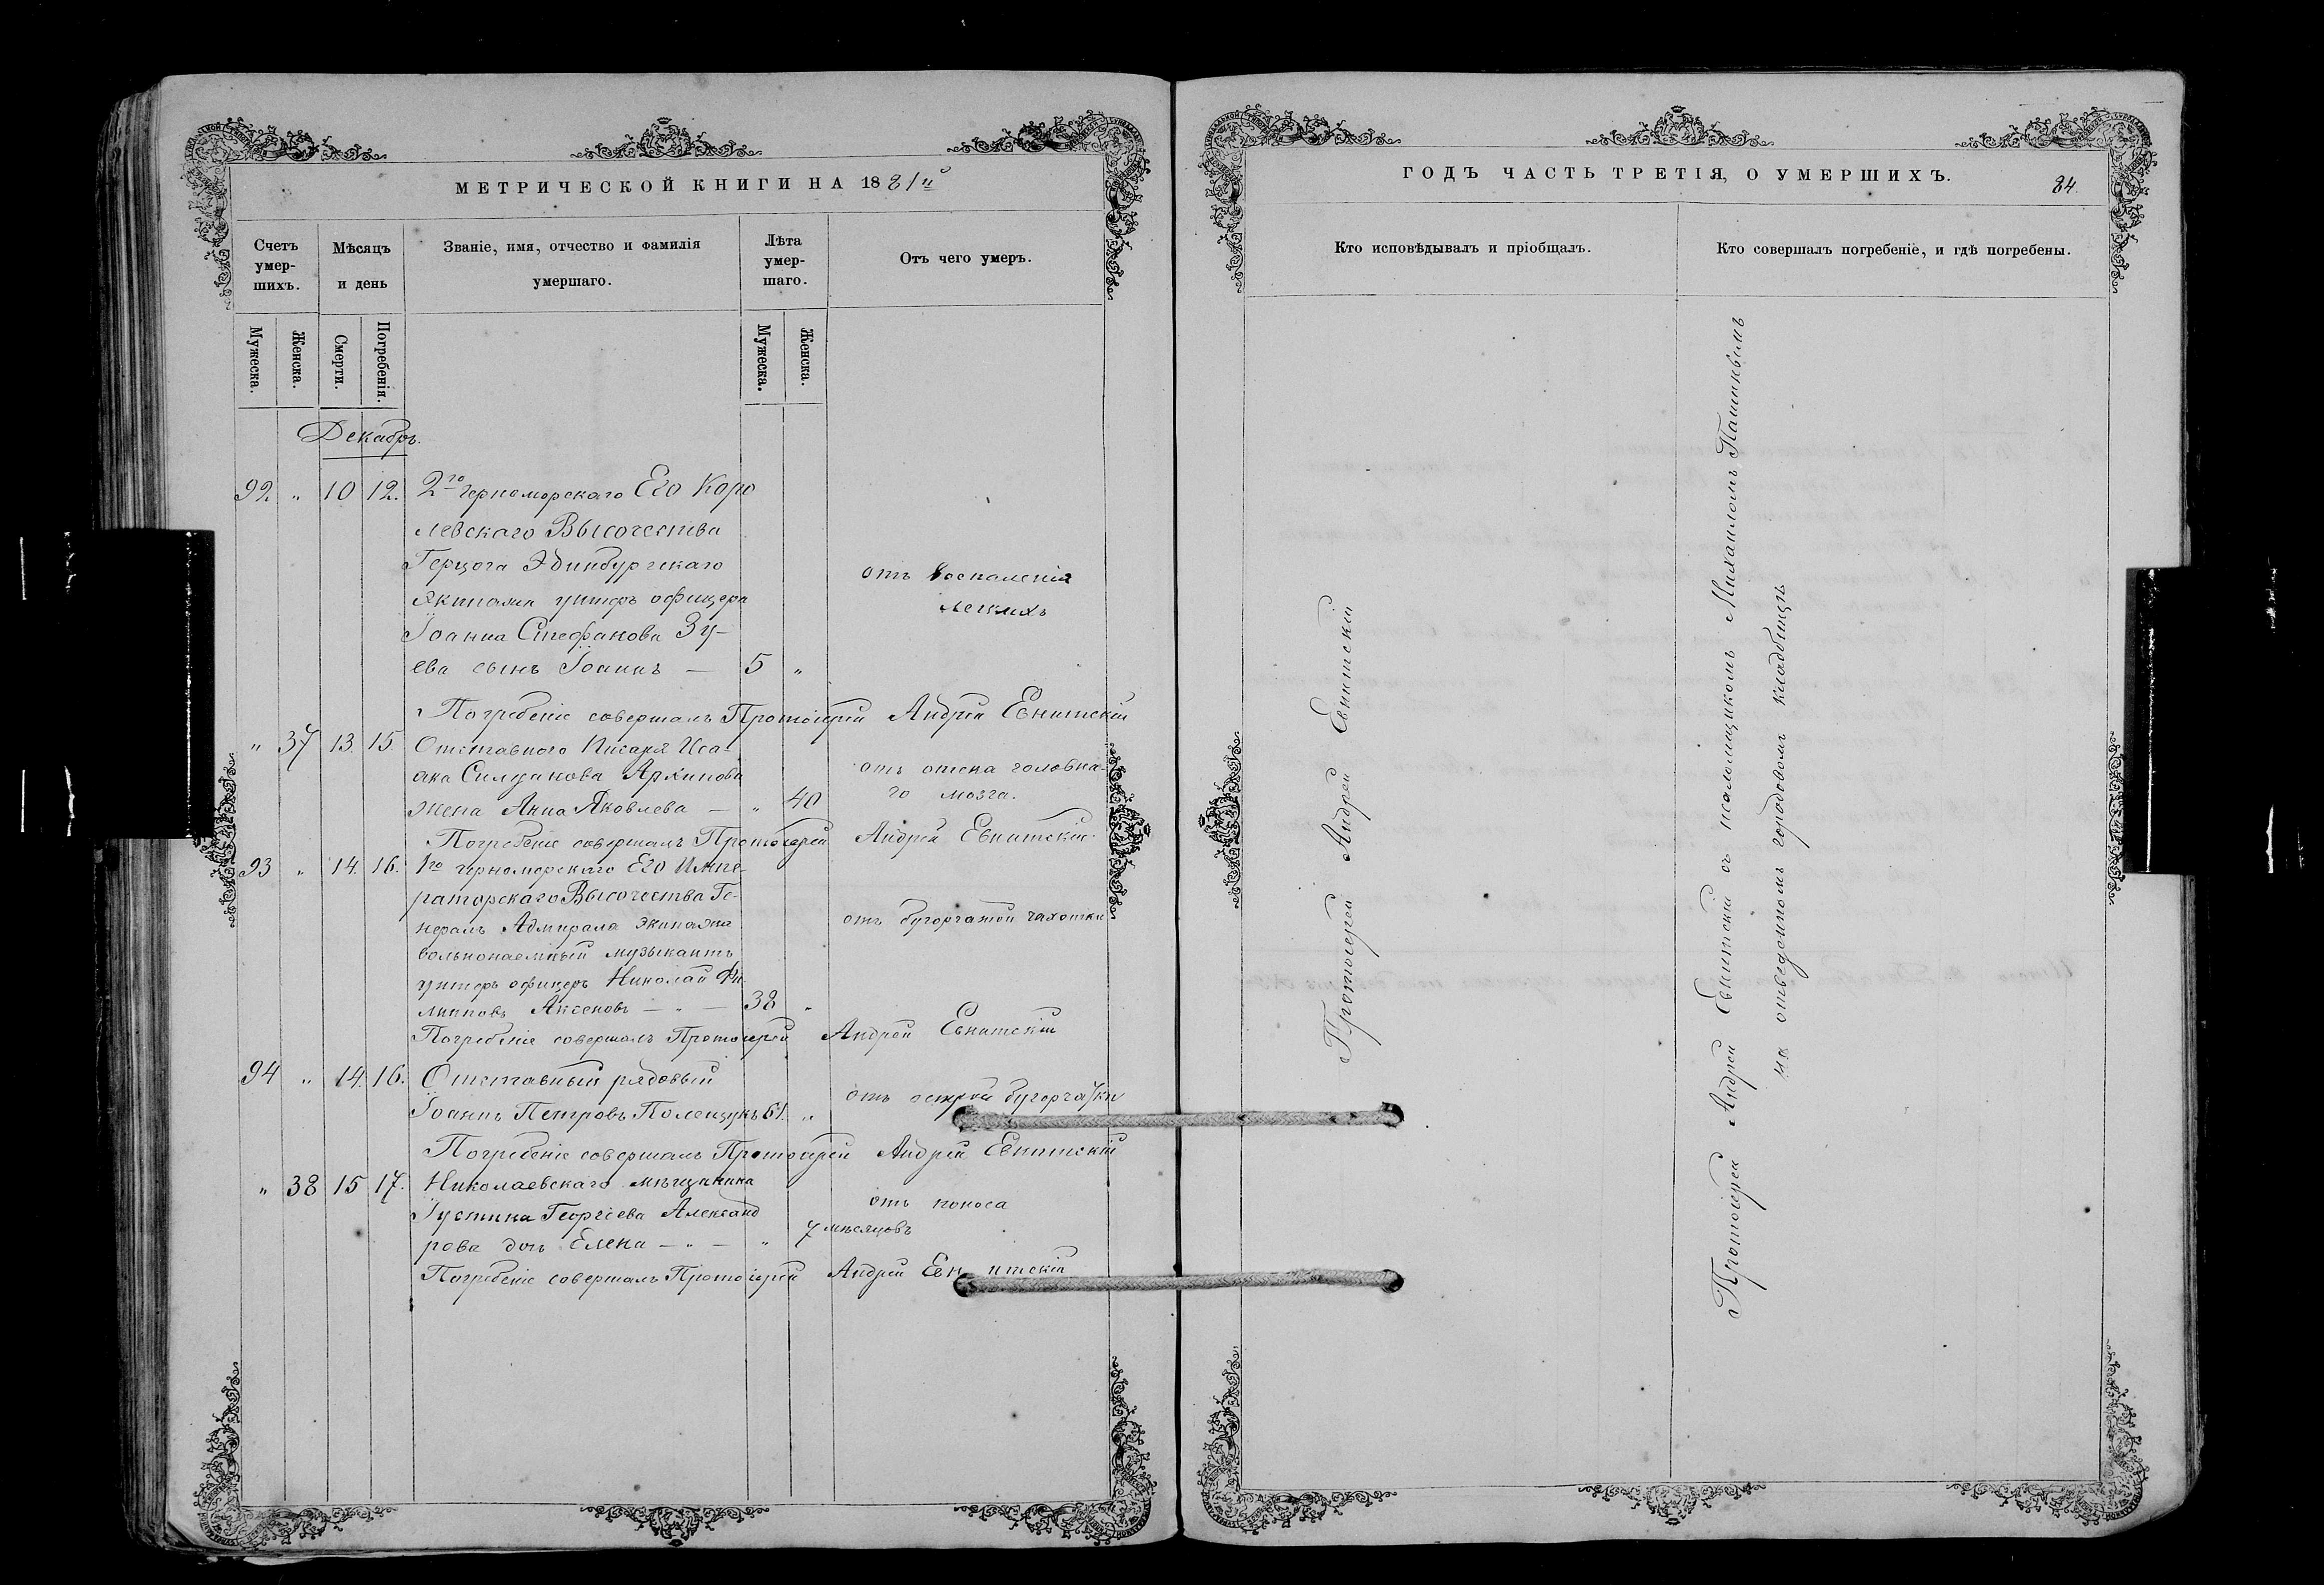 МЕТРИЧЕСКОЙ КНИГИ НА 1881й
Счетъ умер-шихъ.
Мѣсяцъ и день
Званіе, имя, отчество и фамилія умершаго.
Лѣта умер-шаго.
Отъ чего умеръ.
Мужеска.
Женска.
Смерти.
Погребенія.
Мужеска.
Женска.
Декабрь.
92. " 10 12. 2го Черноморскаго Его Коро
левскаго Высочества
Герцога Эдинбургскаго
Экипажа унтеръ офицера
отъ воспаленія
легкихъ
Іоанна Стефанова Зу-
ева сынъ Іоаннъ — 5 "
Погребеніе совершалъ Протоіерей Андрей Евнитскій
" 37 13. 15. Отставного Писаря Иса-
ака Силуанова Архипова
жена Анна Яковлева — " 40
отъ отека головна-
го мозга.
Погребеніе совершалъ Протоіерей Андрей Евнитскій
93 " 14. 16. 1го Черноморскаго Его Импе-
раторскаго Высочества Ге-
нералъ Адмирала Экипажа
отъ бугорчатой чахотки
вольнонаемный музыкантъ
унтеръ офицеръ Николай Фи-
липповъ Аксеновъ — " — 38 "
Погребеніе совершалъ Протоіерей Андрей Евнитскій
94 " 14. 16. Отставный рядовый
Іоаннъ Петровъ Полещукъ 61. "
отъ острой бугорчатки
Погребеніе совершалъ Протоіерей Андрей Евнитскій
" 38 15 17. Николаевскаго мѣщанина
Іустина Георгіева Александ
рова дочь Елена — " — " 7 мѣсяцовъ
отъ поноса
Погребеніе совершалъ Протоіерей Андрей Евнитскій
ГОДЪ ЧАСТЬ ТРЕТІЯ, О УМЕРШИХЪ.
84.
Кто исповѣдывалъ и пріобщалъ.
Кто совершалъ погребеніе, и гдѣ погребены.
Протоіерей Андрей Евнитскій
Протоіерей Андрей Евнитскій съ псаломщикомъ Михаиломъ Пашинымъ
на отведенномъ городовомъ кладбищѣ